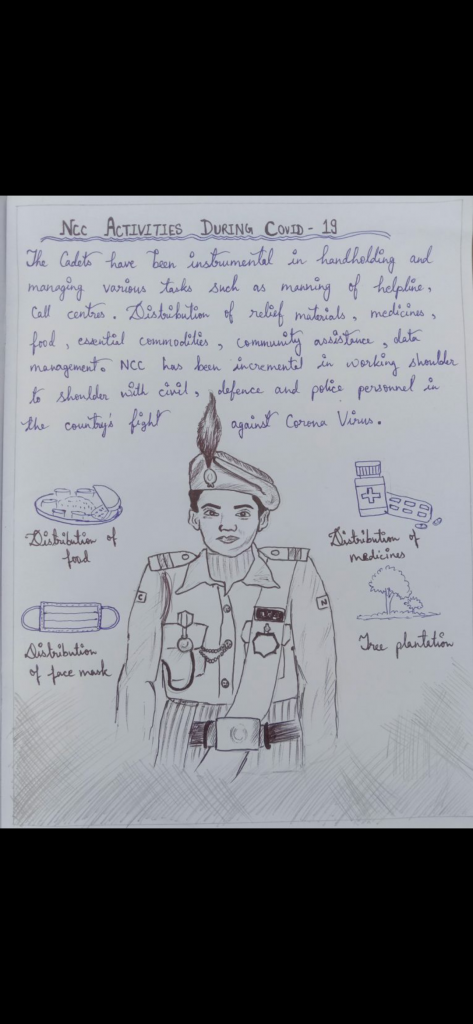 NCC ACTIVITIES DURING COVID - 19
The Cadets have been instrumental in handholding and
managing various tasks such as manning of helpline,
Call centres. Distribution of relief materials, medicines,
food, essential commodities, community assistance, data
management. NCC has been incremental in working shoulder
to shoulder with civil, defence and police personnel in
the country's fight against Corona Virus.
Distribution of
food
Distribution of
medicines
C
N
Distribution
of face mask
Tree plantation